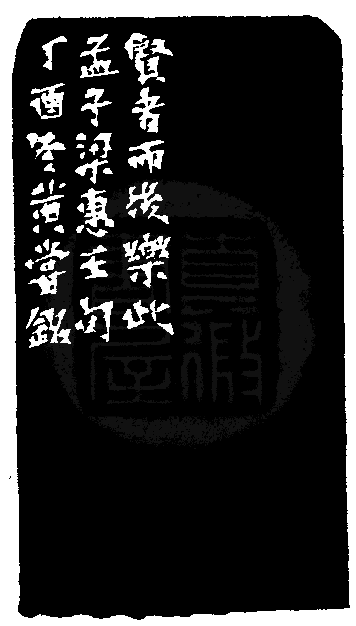 賢者而後樂此
孟子梁惠王句
丁酉冬黃嘗銘